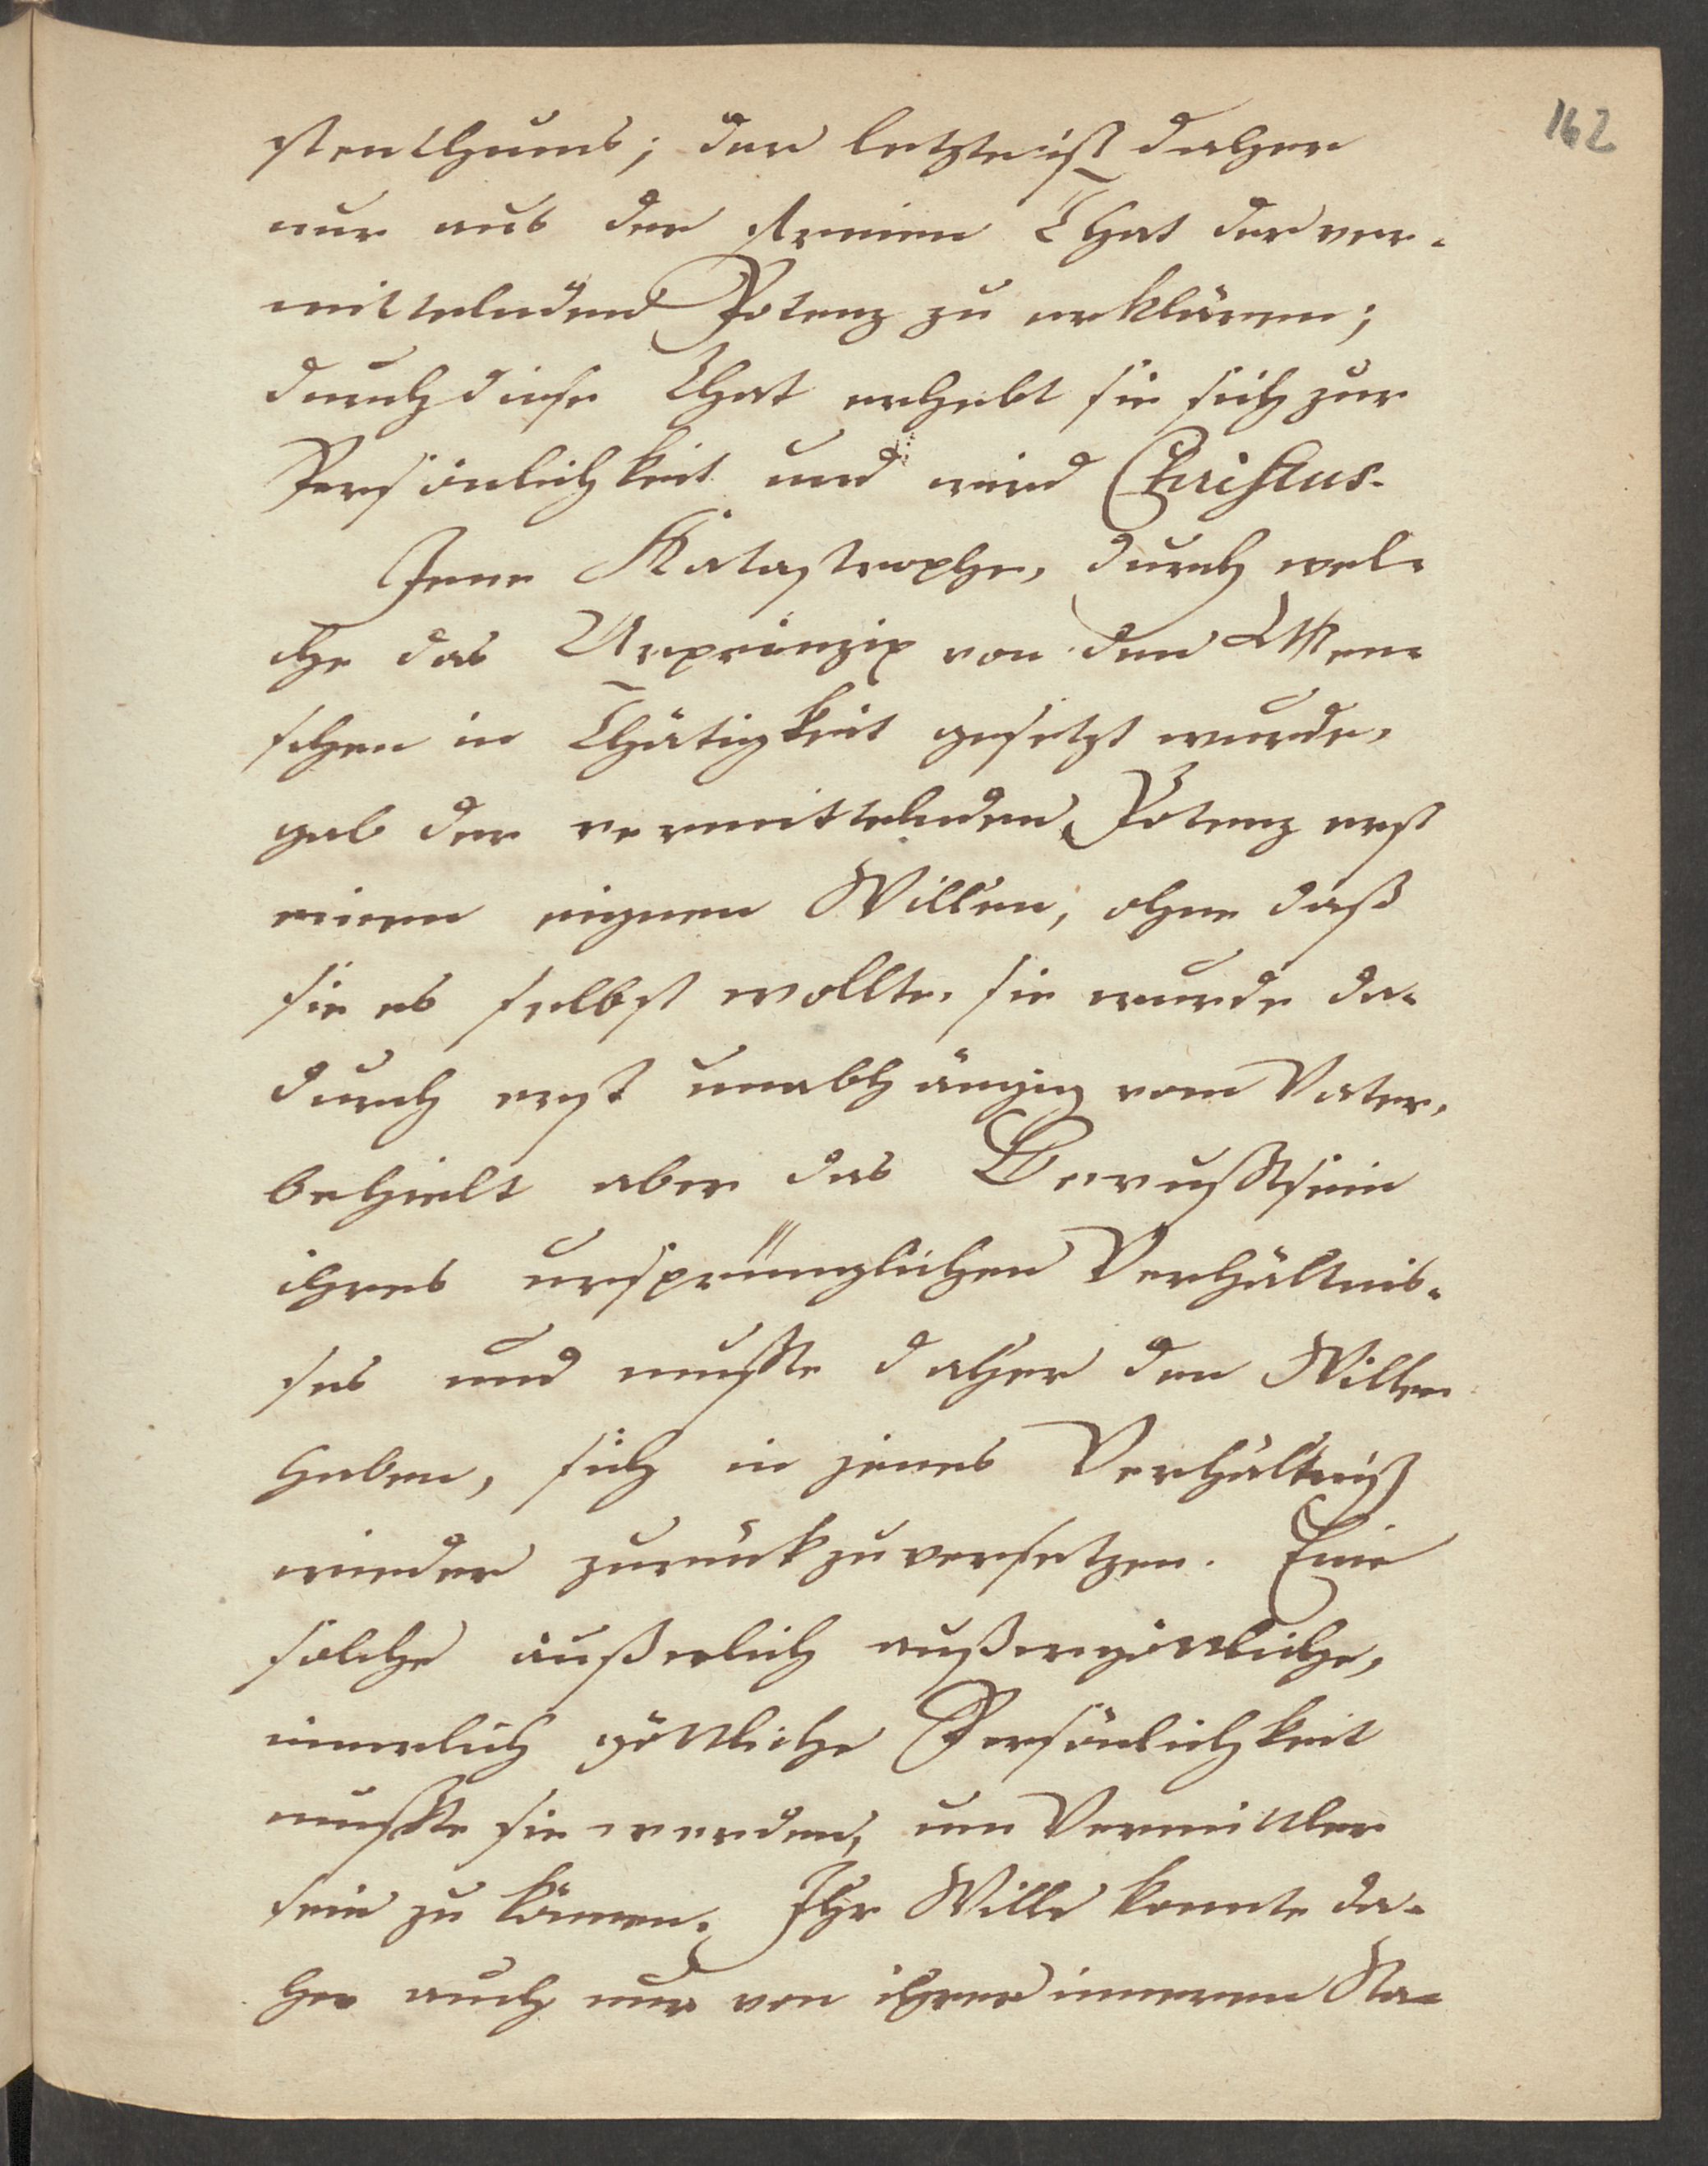 162
stenthums; der letzte ist daher
nur aus der freien That der ver-
mittelnden Potenz zu erklären;
durch diese That erhebt sie sich zur
Persönlichkeit und wird Christus.
Jene Katastrophe, durch wel-
che das Urprinzip von den Men-
schen in Thätigkeit gesetzt wurde,
gab der vermittelnden Potenz erst
einen eignen Willen, ohne daß
sie es selbst wollte. sie wurde da-
durch erst unabhängig vom Vater,
behielt aber das Bewußtsein
ihres ursprünglichen Verhältnis-
ses und mußte daher den Willen
haben, sich in jenes Verhältniß
wieder zurückzuversetzen. Eine
solche äußerlich außergöttliche,
innerlich göttliche Persönlichkeit
mußte sie werden, um Vermittler
sein zu können. Ihr Wille konnte da-
her auch nur von ihrer inneren Na-